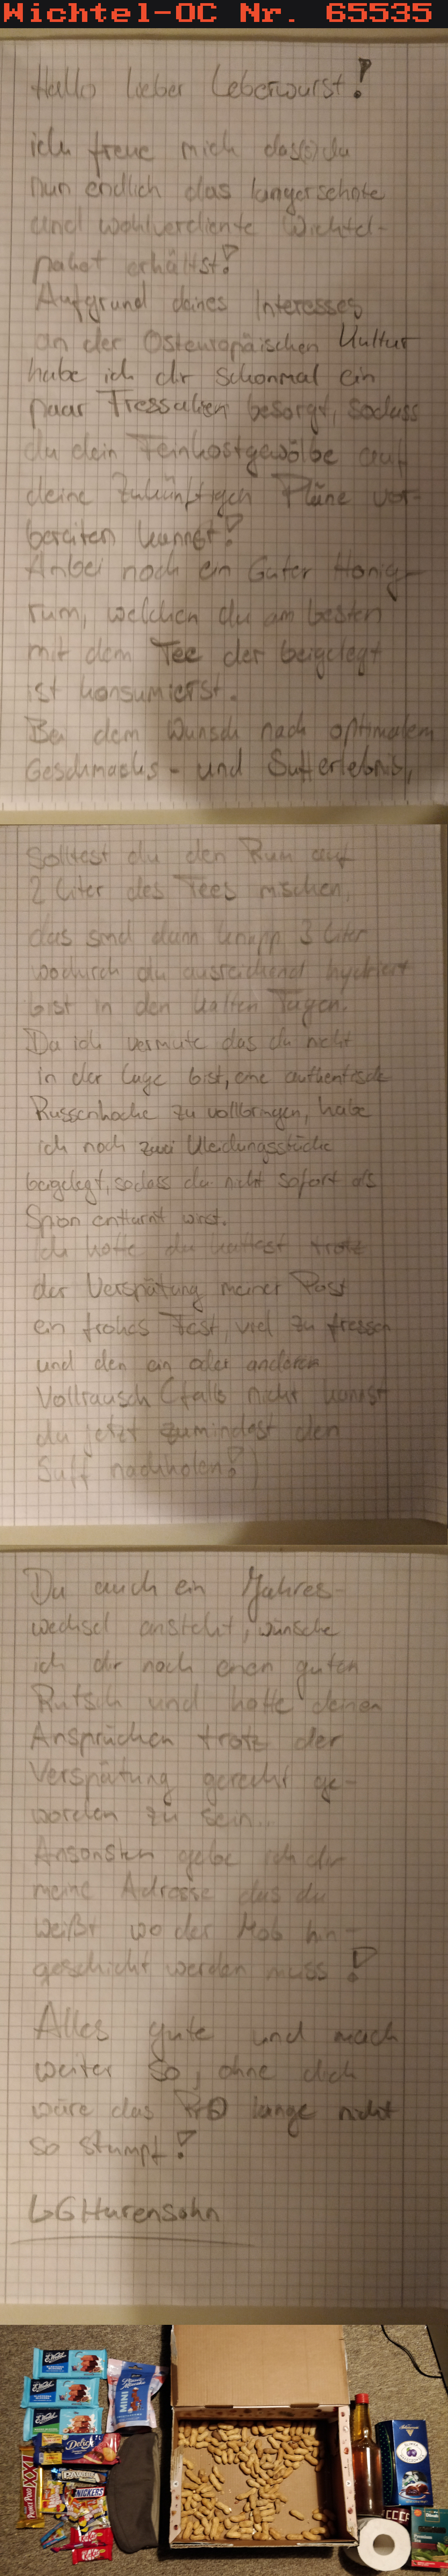 Wichtel-OC Nr. 65535
Hallo lieber Leberwurst!
ich freue mich das(s) du
nun endlich das langerschnte
und wohlverdiente Wichtel-
paket erhältst!
Aufgrund deines Interesses
an der Osteuropäischen Kultur
habe ich dir schonmal ein
paar Fressalien besorgt, sodass
du dein Feinkostgewölbe auf
deine zukünftigen Pläne vor-
bereiten kannst!
Anbei noch ein Guter Honig-
rum, welchen du am besten
mit dem Tee der beigelegt
ist konsumierst.
Bei dem Wunsch nach optimalem
Geschmacks- und Sufferlebnis,
Solltest du den Rum auf
2 Liter des Tees mischen,
das sind dann knapp 3 Liter
wodurch du ausreichend hydriert
bist in den kalten Tagen.
Da ich vermute das du nicht
in der Lage bist, eine authentische
Russenhocke zu vollbringen, habe
ich noch zwei Kleidungsstücke
beigelegt, sodass du nicht sofort als
Spion enttarnt wirst.
Ich hoffe du hattest trotz
der Verspätung meiner Post
ein frohes Fest, viel zu fressen
und den ein oder anderen
Vollrausch (falls nicht kannst
du jetzt zumindest den
Suff nachholen!)
Da auch ein Jahres-
wechsel ansteht, wünsche
ich dir noch einen guten
Rutsch und hoffe deinen
Ansprüchen trotz der
Verspätung gerecht ge-
worden zu sein...
Ansonsten gebe ich dir
meine Adresse das du
weißt wo der Mob hin-
geschickt werden muss!
Alles gute und mach
weiter so, ohne dich
wäre das PrO lange nicht
so stumpf!
LG Hurensohn
E. Wedel
E. Wedel
E. Wedel
MINI
Delicje
PAWEŁEK
NICKERS
Prince Polo
XXL
KitKat
Premium
Tea